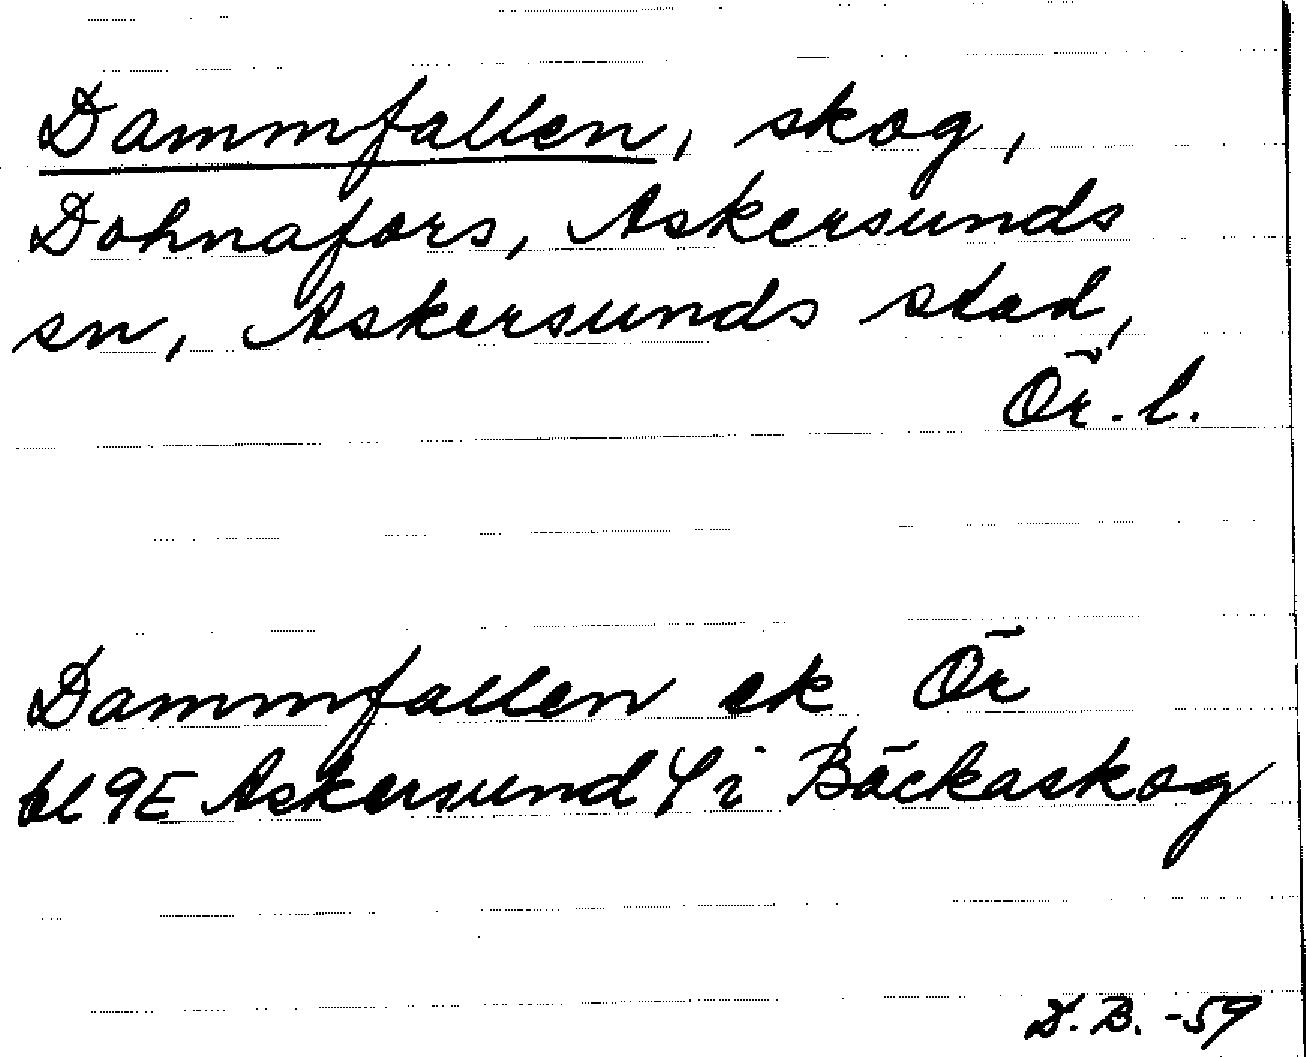 Dammfallen, skog,
Dohnafors, Askersunds
sn, Askersunds stad,
Ör. l.
Dammfallen ek Ör
bl 9E Askersund i Bäckaskog
D.B. -59